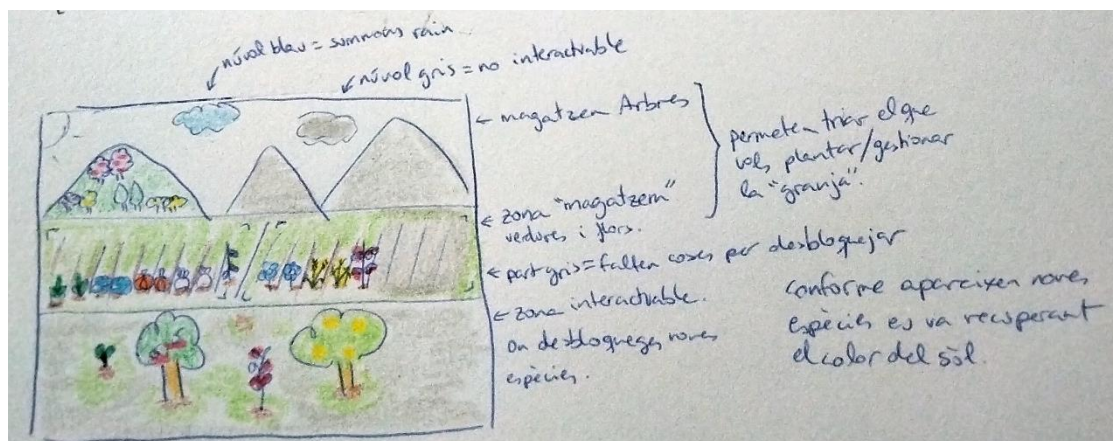 núvol blau = summons rain
núvol gris = no interactuable
magatzem Arbres
zona "magatzem"
verdures i flors.
permeten triar el que
vols plantar/gestionar
la "granja".
part gris = falten coses per desbloquejar
zona interactuable.
on desbloqueges noves
espècies.
conforme apareixen noves
espècies es va recuperant
el color del sòl.